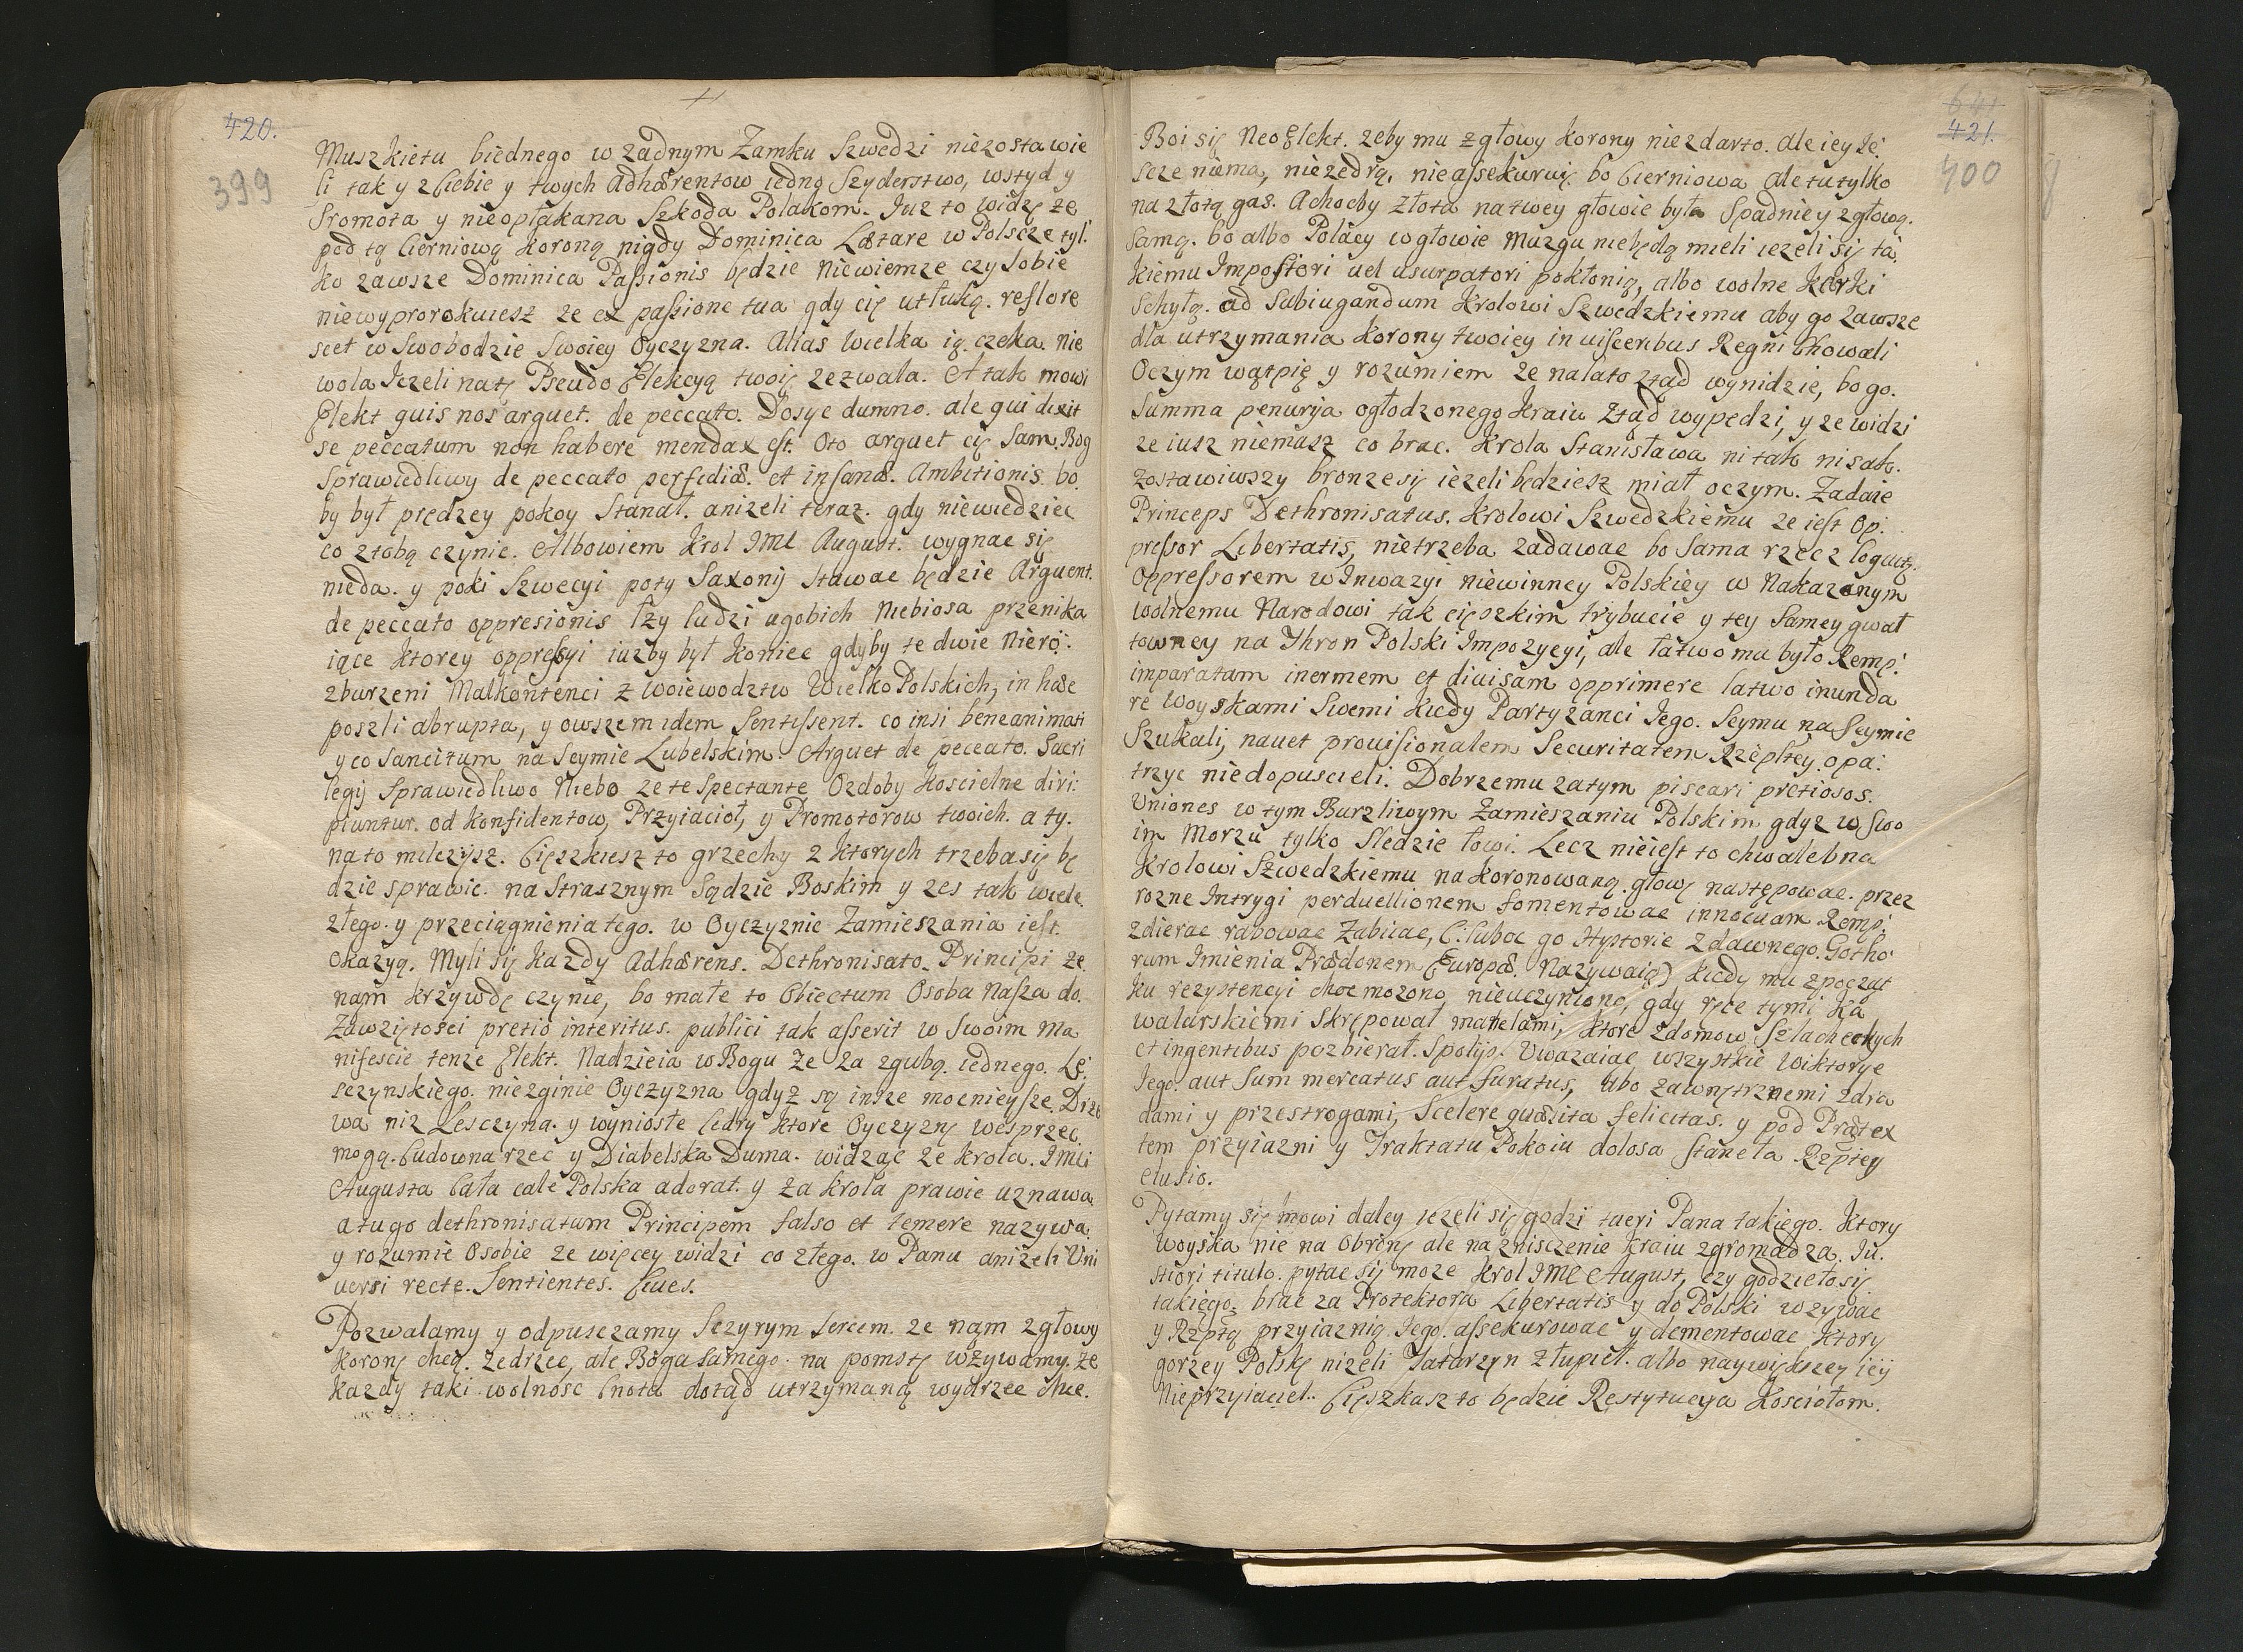 420.
399
Muszkietu biednego w zadnym Zamku Szwedzi niezostawie
li tak y z Ciebie y twych Adhærentow iedno Szyderstwo, wstyd y
Sromota y nieopłakana Szkoda Polakom. Iuz to widzę ze
pod tą Cierniową Koroną nigdy Dominica Lætare w Polscze tyl:
ko zawsze Dominica Passionis będzie Niewiemze czy Sobie
niewyprorokuiesz ze ex passione tua gdy cię utłuką. reflore
scet w Swobodzie Swoiey Oyczyzna. Alias Wielka ią. czeka. Nie
wola Iezeli natę Pseudo Elekcyą twoię zezwala. A tak mowi
Elekt quis nos arguet. de peccato. Dosyc dumno. ale qui dixit
se peccatum non habere mendax est. Oto arguet cię Sam. Bog
Sprawiedliwy de peccato perfidiæ. et insanæ. Ambitionis. bo.
by był prędzey pokoy Stanął. anizeli teraz. gdy niewiedziec
co ztobą czynic. Albowiem Krol IMC August. wygnac się
nieda. y poki Szwecyi poty Saxonij Stawac będzie Arguent.
de peccato oppresionis łzy ludzi ugobich Niebiosa przenika
iące Ktorey oppressyi iuzby był Koniec gdyby te dwie Niero:
zburzeni Malkontenci z Woiewodztw WielkoPolskich, in hæc
poszli abrupta, y owszem idem Sentissent. co insi beneanimati
y co Sancitum na Seymie Lubelskim. Arguet de peccato. Sacri
legij Sprawiedliwo Niebo ze te Spectante Ozdoby Koscielne diri:
piuntur. od Konfidentow, Przyiacioł, y Promotorow twoich. a ty.
na to milczysz. Cięszkiesz to grzechy z Ktorych trzeba się bę
dzie sprawic. na Strasznym Sądzie Boskim y zes tak wiele.
złego. y przeciągnienia tego. w Oyczyznie Zamieszania iest.
Okazyą. Myli się Kazdy Adhærens. Dethronisato. Principi ze.
nam Krzywdę czynie, bo małe to Obiectum Osoba Nasza do.
Zawziętosci pretio interitus. publici tak asserit w Swoim Ma
nifescie tenze Elekt. Nadzieia w Bogu ze za zgubą. iednego. Le:
sczynskiego. niezginie Oyczyzna gdyz są insze mocnieysze. Drze
wa niz Lesczyna. y wyniosłe Cedry Ktore Oyczyznę wesprzec
mogą. Cudowna rzec y Diabelska Duma. widząc ze Krola. IMci
Augusta Cała cale Polska adorat. y za Krola prawie uznawa.
a tu go dethronisatum Principem falso et temere nazywa.
y rozumie Osobie ze więcey widzi co złego. w Panu anizeli Uni
versi recte. Sentientes. Cives.
Pozwalamy y odpusczamy Sczyrym Sercem. ze nam z głowy
Koronę chcą. zedrzec, ale Boga Samego. na pomstę wzywamy. ze
Kazdy taki wolnosc Cnotą dotąd utrzymaną wydrzec chce.
421.
400
Boi się Neo Elekt. zeby mu z głowy Korony niezdarto. ale iey Ie:
scze niema, niezedrą, nieassekuruię. bo Cierniowa ale tu tylko
na złotą gas. A chocby złota na twey głowie była Spadnie y z głową.
Samą. bo albo Polacy w głowie Muzgu niebędą mieli iezeli się ta:
kiemu Impostori vel usurpatori pokłonią, albo wolne Karki
Schylą. ad Subiugandum Krolowi Szwedzkiemu aby go zawsze
dla utrzymania Korony twoiey in visceribus Regni Chowali
Oczym wątpię y rozumiem ze nalato ztąd wynidzie, bo go.
Summa penurya ogłodzonego Kraiu ztąd wypędzi, y ze widzi
ze iusz niemasz co brac. Krola Stanisława ni tak ni sak.
zostawiwszy bronze się iezeli będziesz miał oczym. Zadaie
Princeps Dethronisatus. Krolowi Szwedzkiemu ze iest Op:
pressor Libertatis, nietrzeba zadawac bo Sama rzecz loquitur.
Oppressorem w Inwazyi niewinney Polskiey w Nakazanym
wolnemu Narodowi tak cięszkim trybucie y tey Samey gwał
towney na Thron Polski Impozycyi, ale łatwo mu było Remp:
imparatam inermem et divisam opprimere latwo inunda
re Woyskami Swemi Kiedy Partyzanci Iego. Seymu na Seymie
Szukali, nawet provisionalem Securitatem Rzepltey. opa:
trzyc niedopuscieli. Dobrzemu zatym piscari pretiosos.
Uniones w tym Burzliwym Zamieszaniu Polskim gdyz w Swo
im Morzu tylko Sledzie łowi. Lecz nieiest to chwalebna
Krolowi Szwedzkiemu na Koronowaną. głowę następowac. przez
rozne Intrygi perduellionem fomentowac innocuam Remp:
zdierac rabowac Zabiiac, (: luboc go Hystorie z dawnego. Gotho:
rum Imienia Prædonem Europæ. Nazywaią) Kiedy mu z począt
Ku rezystencyi choc mozono, nieuczyniono, gdy ręce tymi Ka
walarskiemi Skrępował manelami, Ktore z domow Szlacheckych
et ingentibus pozbierał. Spolijs. Uwazaiac wszystkie Wiktorye
Iego. aut Sum mercatus aut furatus, ubo zawnętrznemi zdra
dami y przestrogami, Scelere quæsita felicitas. y pod Prætex
tem przyiazni y Traktatu Pokoiu dolosa Stanęła Rzptey
elusio.
Pytamy się mowi daley iezeli się godzi tueri Pana takiego. Ktory
Woyska nie na Obronę ale na znisczenie Kraiu zgromadza. Iu.
stiori titulo. pytac się moze Krol IMC August, czy godzieło się
takiego. brac za Protektora Libertatis y do Polski wzywac
y Rzptą przyiaznią. Iego. assekurowac y dementowac Ktory
gorzey Polskę nizeli Tatarzyn złupieł. albo naywiększey iey
Nieprzyiaciel. Cięszkasz to będzie Restytucya Kosciołom.